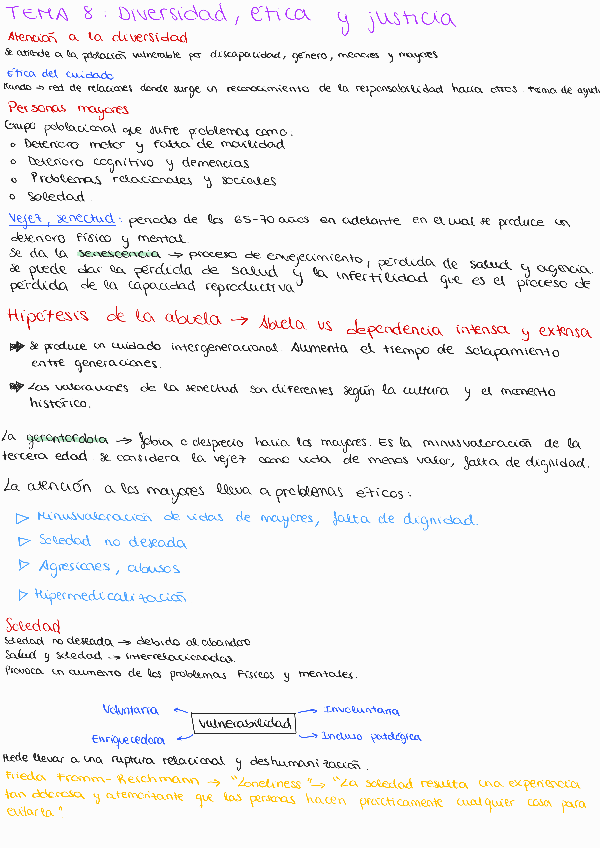 TEMA 8. Diversidad, ética y justicia
Atención a la diversidad
Se atiende a la población vulnerable por discapacidad, género, menores y mayores
Ética del cuidado
Mundo → red de relaciones donde surge un reconocimiento de la responsabilidad hacia otros trama de ayuda
Personas mayores
Grupo poblacional que sufre problemas como:
o Deterioro motor y falta de movilidad
o Deterioro cognitivo y demencias
o Problemas relacionales y sociales
o Soledad
Vejez, senectud: periodo de los 65-70 años en adelante en el cual se produce un
deterioro físico y mental.
Se da la senescencia → proceso de envejecimiento, pérdida de salud y agencia.
Se puede dar la pérdida de salud y la infertilidad que es el proceso de
pérdida de la capacidad reproductiva
Hipótesis de la abuela → Abuela vs dependencia intensa y extensa
Se produce un cuidado intergeneracional Aumenta el tiempo de solapamiento
entre generaciones.
Las valoraciones de la senectud son diferentes según la cultura y el momento
histórico.
La → fobia o desprecio hacia los mayores. Es la minusvaloración de la
tercera edad se considera la vejez como vida de menos valor, falta de dignidad.
La atención a los mayores lleva a problemas éticos:
▷ Minusvaloración de vidas de mayores, falta de dignidad.
▷ Soledad no deseada
▷ Agresiones, abusos
▷ Hipermedicalización
Soledad
Soledad no deseada → debido al abandono
Salud y soledad → interrelacionadas.
Provoca un aumento de los problemas físicos y mentales.
Voluntaria Involuntaria
vulnerabilidad
Enriquecedora Incluso patológica
Puede llevar a una ruptura relacional y deshumanización.
Frieda Fromm-Reichmann → "Loneliness" → "La soledad resulta una experiencia
tan dolorosa y atemorizante que las personas hacen prácticamente cualquier cosa para
evitarla"